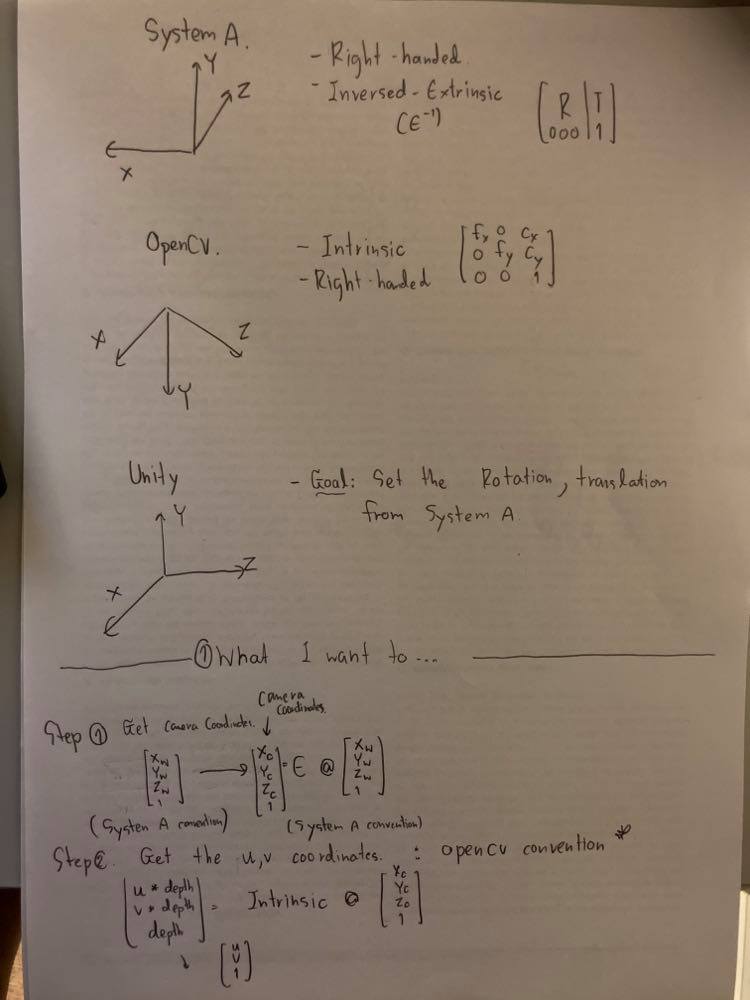 System A.
Y
Z
X
- Right-handed
- Inversed-Extrinsic
(E⁻¹)
R T
000 1
OpenCV.
- Intrinsic
- Right-handed
fx 0 Cx
0 fy Cy
0 0 1
X
Z
Y
Unity
Y
Z
X
- Goal: Set the Rotation, translation
from System A
① What I want to ...
Step ① Get Camera Coordinates.
Camera
Coordinates.
Xw
Yw
Zw
1
Xc
Yc
Zc
1
= E @
Xw
Yw
Zw
1
(System A convention)
(System A convention)
Step 2. Get the u,v coordinates. : OpenCV convention *
u * depth
v * depth
depth
= Intrinsic @
Xc
Yc
Zc
1
u
v
1